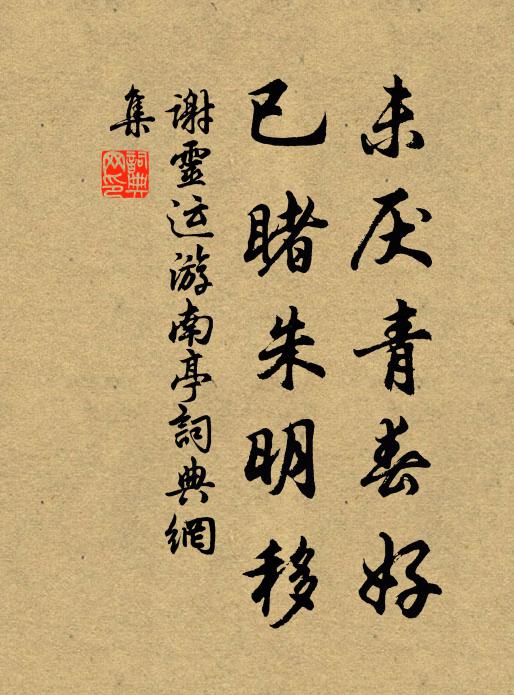 未厌青春好
已睹朱明移
谢靈运游南亭詞典網
集
詞典
网印